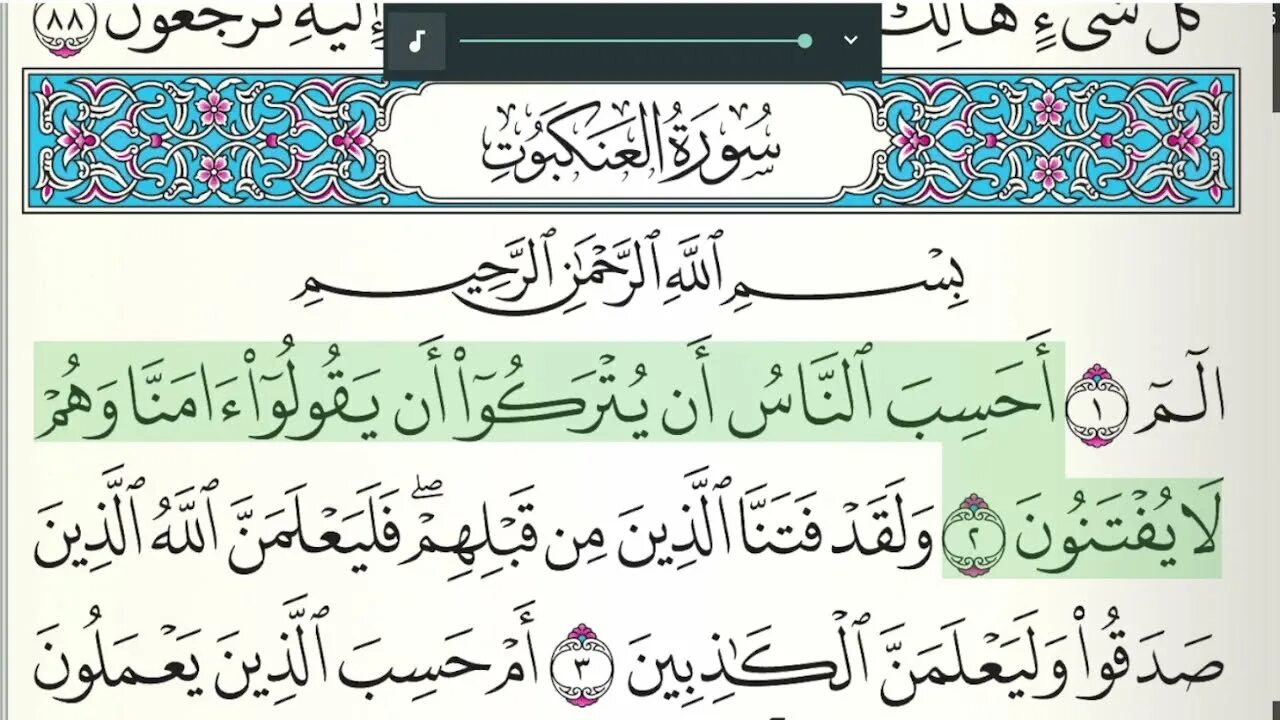 كُلُّ شَىْءٍ هَالِكٌ إِلَيْهِ تُرْجَعُونَ ٨٨
سُورَةُ الْعَنكَبُوتِ
بِسْمِ ٱللَّهِ ٱلرَّحْمَٰنِ ٱلرَّحِيمِ
الٓمٓ ١ أَحَسِبَ ٱلنَّاسُ أَن يُتْرَكُوٓا۟ أَن يَقُولُوٓا۟ ءَامَنَّا وَهُمْ
لَا يُفْتَنُونَ ٢ وَلَقَدْ فَتَنَّا ٱلَّذِينَ مِن قَبْلِهِمْ ۖ فَلَيَعْلَمَنَّ ٱللَّهُ ٱلَّذِينَ
صَدَقُوا۟ وَلَيَعْلَمَنَّ ٱلْكَٰذِبِينَ ٣ أَمْ حَسِبَ ٱلَّذِينَ يَعْمَلُونَ